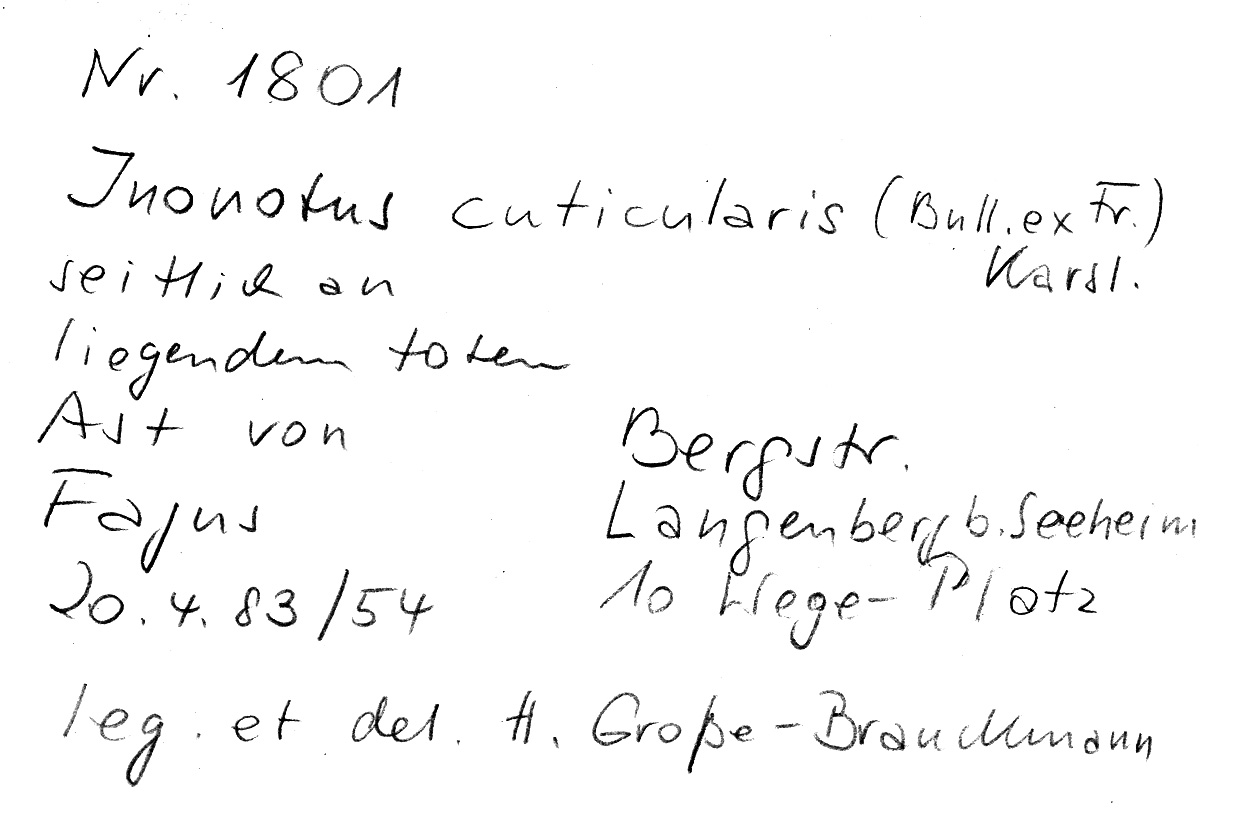 Nr. 1801
Inonotus cuticularis (Bull. ex Fr.)
Karst.
seitlich an
liegendem toten
Ast von
Fagus
20.4.83/54
Bergstr.
Langenberg b. Seeheim
10 Wege-Platz
leg. et det. H. Große-Brauckmann